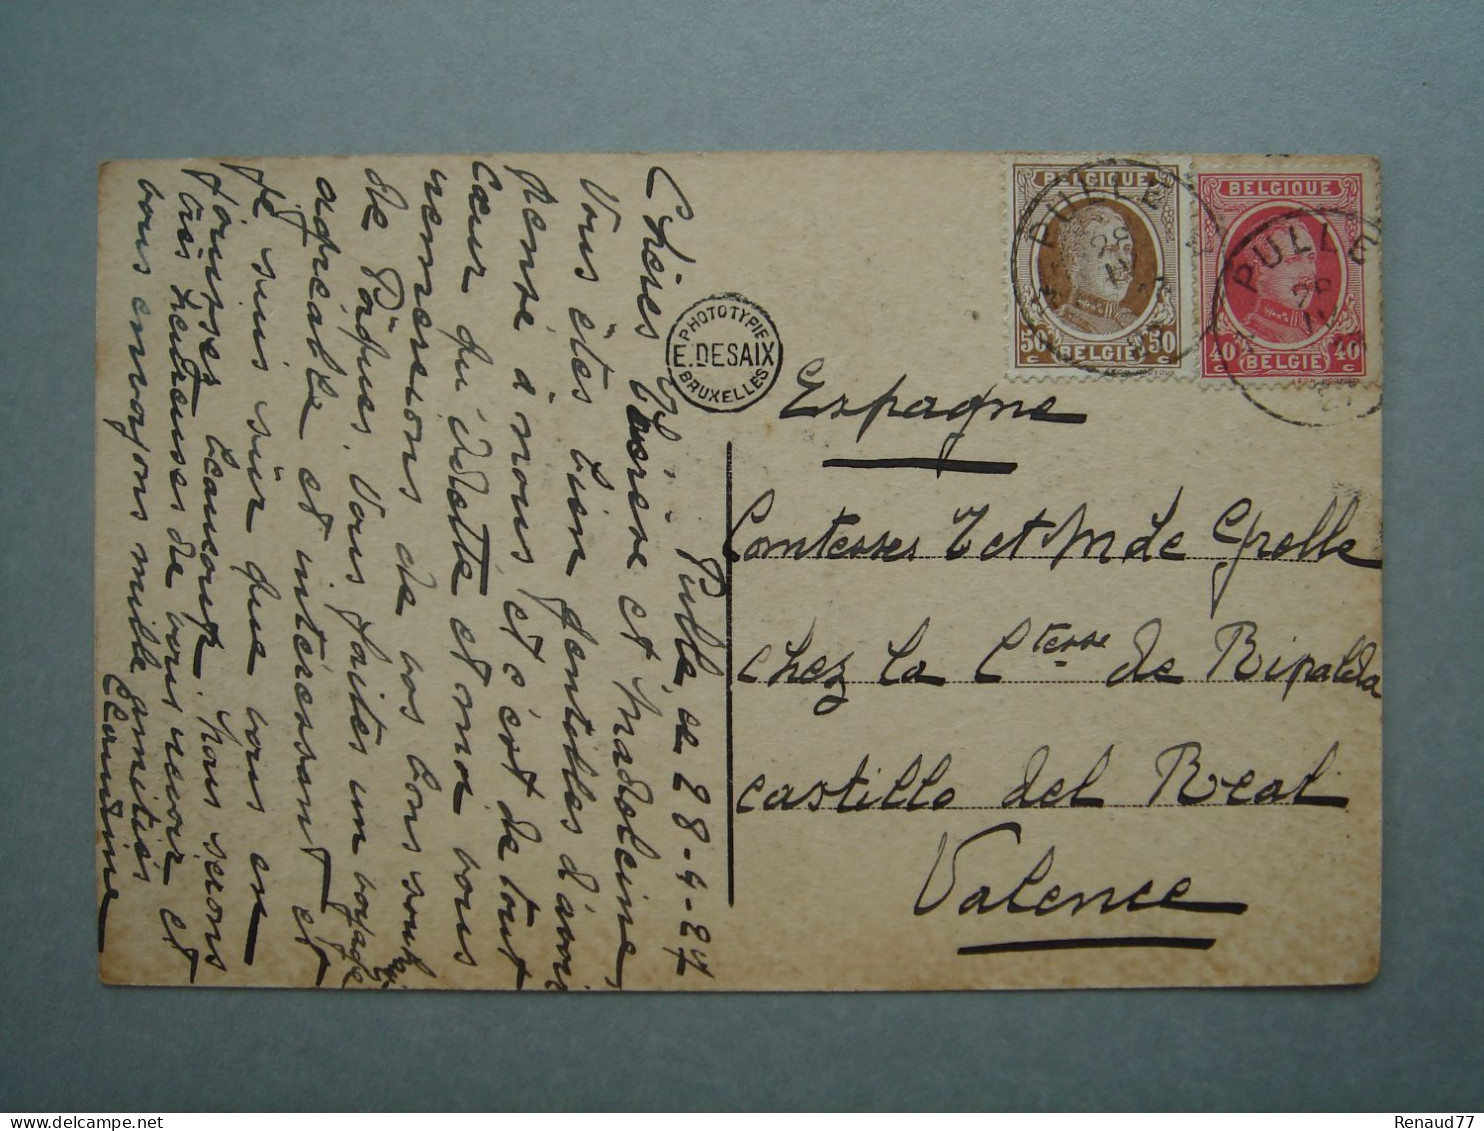 Pulle le 28-4-27
Chères Lucresse et Madeleine,
Vous êtes bien gentilles d'avoir
pensé à nous et c'est de tout
cœur qu'Odette et moi vous
remercions de vos bons souhaits
de Pâques. Vous faites un voyage
agréable et intéressant et
je suis sûr que vous en
jouissez beaucoup. Nous serons
très heureuses de vous revoir et
vous envoyons mille amitiés
Claudine
PHOTOTYPIE
E. DESAIX
BRUXELLES
BELGIQUE
50 50
BELGIË
PULLE
28
BELGIQUE
40 40
BELGIË
PULLE
28
Espagne
Comtesses L et M de Grelle
chez la Ctesse de Ripalda
castillo del Real
Valence
Renaud77